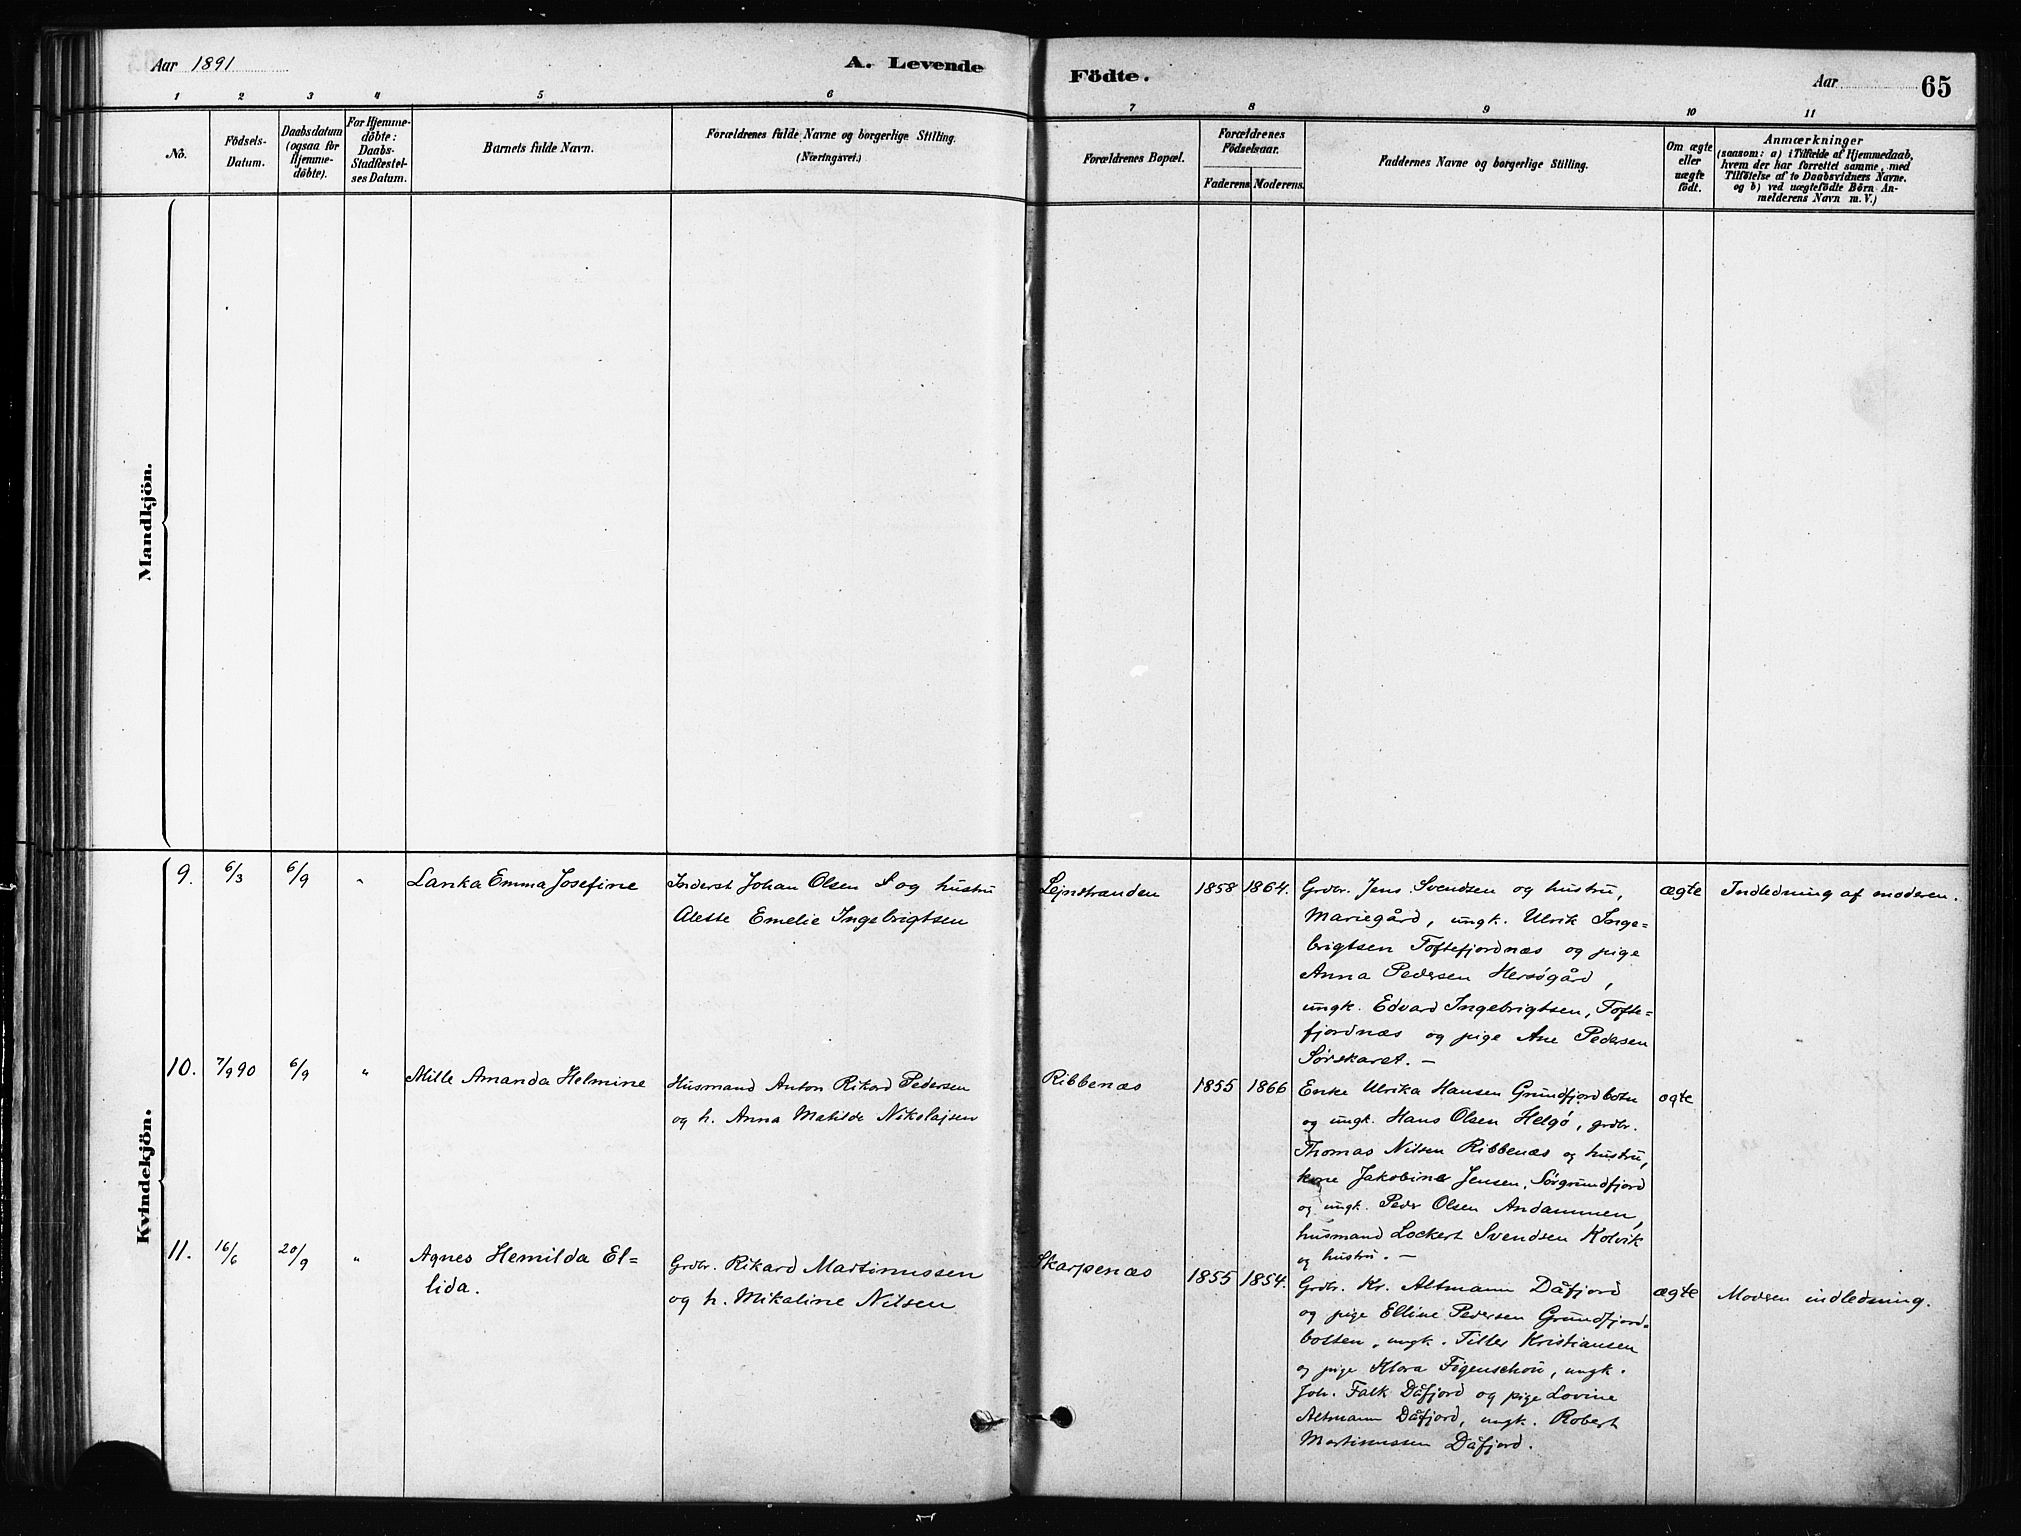 Aar 1891
A. Levende
Födte.
Aar
65
1 2 3 4 5 6 7 8 9 10 11
No.
Födsels-
Datum.
Daabsdatum
(ogsaa for
Hjemme-
döbte).
For Hjemme-
döbte:
Daabs-
Stadfæstel-
ses Datum.
Barnets fulde Navn.
Forældrenes fulde Navne og borgerlige Stilling.
(Næringsvei.)
Forældrenes Bopæl.
Forældrenes
Födselsaar.
Faderens Moderens.
Faddernes Navne og borgerlige Stilling.
Om ægte
eller
uægte
födt.
Anmærkninger
(saasom: a) i Tilfælde af Hjemmedaab,
hvem der har forrettet samme, med
Tilföielse af to Daabsvidners Navne.
og b) ved uægtefödte Börn An-
melderens Navn m. V.)
Mandkjön.
Kvindekjön.
9. 6/3 6/9 "
Lanka Emma Josefine
Inderst Johan Olsen S og hustru
Alette Emelie Ingebrigtsen
Lejnstranden
1858 1864.
Grdbr. Jens Svendsen og hustru,
Mariegård, ungk. Ulrik Inge=
brigtsen Toftefjordnæs og pige
Anna Pedersen Hersögård,
ungk. Edvard Ingebrigtsen, Tofte=
fjordnæs og pige Ane Pedersen
Sörskaret. —
ægte
Indledning af moderen.
10. 7/9 90 6/9 "
Mille Amanda Helmine
Husmand Anton Rikard Pedersen
og h. Anna Matilde Nikolajsen
Ribbenæs
1855 1866
Enke Ulrika Hansen Grundfjordbotn
og ungk. Hans Olsen Helgø, grdbr.
Thomas Nilsen Ribbenæs og hustru,
kone Jakobine Jensen, Sörgrundfjord
og ungk. Peder Olsen Andammen,
husmand Lockert Svendsen Kolvik
og hustru. —
ægte
11. 16/6 20/9 "
Agnes Hemilda El=
lida.
Grdbr. Rikard Martinussen
og h. Mikaline Nilsen
Skarpenæs
1855 1854.
Grdbr. Kr. Altmann Dåfjord
og pige Elline Pedersen Grundfjord=
botten, ungk. Tiller Kristiansen
og pige Klara Figenschou, ungk.
Joh. Falk Dåfjord og pige Lovine
Altmann Dåfjord, ungk. Robert
Martinussen Dåfjord.
ægte
Modren indledning.